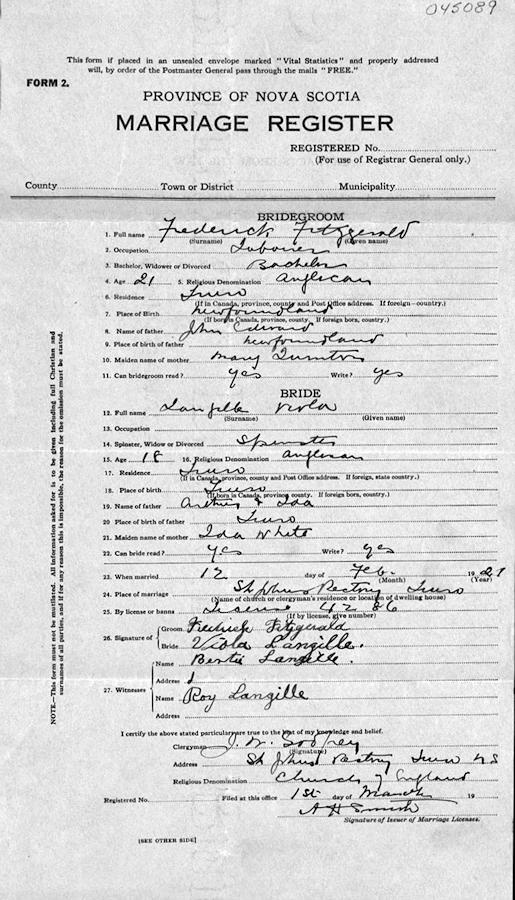 045089
This form if placed in an unsealed envelope marked "Vital Statistics" and properly addressed
will, by order of the Postmaster General pass through the mails "FREE."
FORM 2.
PROVINCE OF NOVA SCOTIA
MARRIAGE REGISTER
REGISTERED No.
(For use of Registrar General only.)
County Town or District Municipality
BRIDEGROOM
1. Full name Frederick Fitzgerald
(Surname) (Given name)
2. Occupation Labourer
3. Bachelor, Widower or Divorced Bachelor
4. Age 21 5. Religious Denomination Anglican
6. Residence Truro
(If in Canada, province, county and Post Office address. If foreign—country.)
7. Place of Birth Newfoundland
(If born in Canada, province, county. If foreign born, country.)
8. Name of father John Edward
9. Place of birth of father Newfoundland
10. Maiden name of mother Mary
11. Can bridegroom read? yes Write? yes
BRIDE
12. Full name Langille Viola
(Surname) (Given name)
13. Occupation
14. Spinster, Widow or Divorced Spinster
15. Age 18 16. Religious Denomination Anglican
17. Residence Truro
(If in Canada, province, county and Post Office address. If foreign, state country.)
18. Place of birth Truro
(If born in Canada, province, county. If foreign born, country.)
19. Name of father & Ida
20 Place of birth of father Truro
21. Maiden name of mother Ida White
22. Can bride read? yes Write? yes
23. When married 12 day of Feb. 19
(Month) (Year)
24. Place of marriage St Johns Rectory Truro
(Name of church or clergyman's residence or location of dwelling house)
25. By license or banns License 4286
(If by license, give number)
26. Signature of Groom Fredrick Fitzgerald
Bride Viola Langille.
27. Witnesses
Name Bertie Langille.
Address
Name Roy Langille
Address
I certify the above stated particulars are true to the best of my knowledge and belief.
Clergyman J. W. Godfrey
(Signature)
Address St Johns Rectory Truro NS
Religious Denomination Church of England
Registered No. Filed at this office 1st day of March 19
A H Smith
Signature of Issuer of Marriage Licenses.
[SEE OTHER SIDE]
NOTE—This form must not be mutilated. All information asked for is to be given including full Christian and
surnames of all parties, and if for any reason this is impossible, the reason for the omission must be stated.